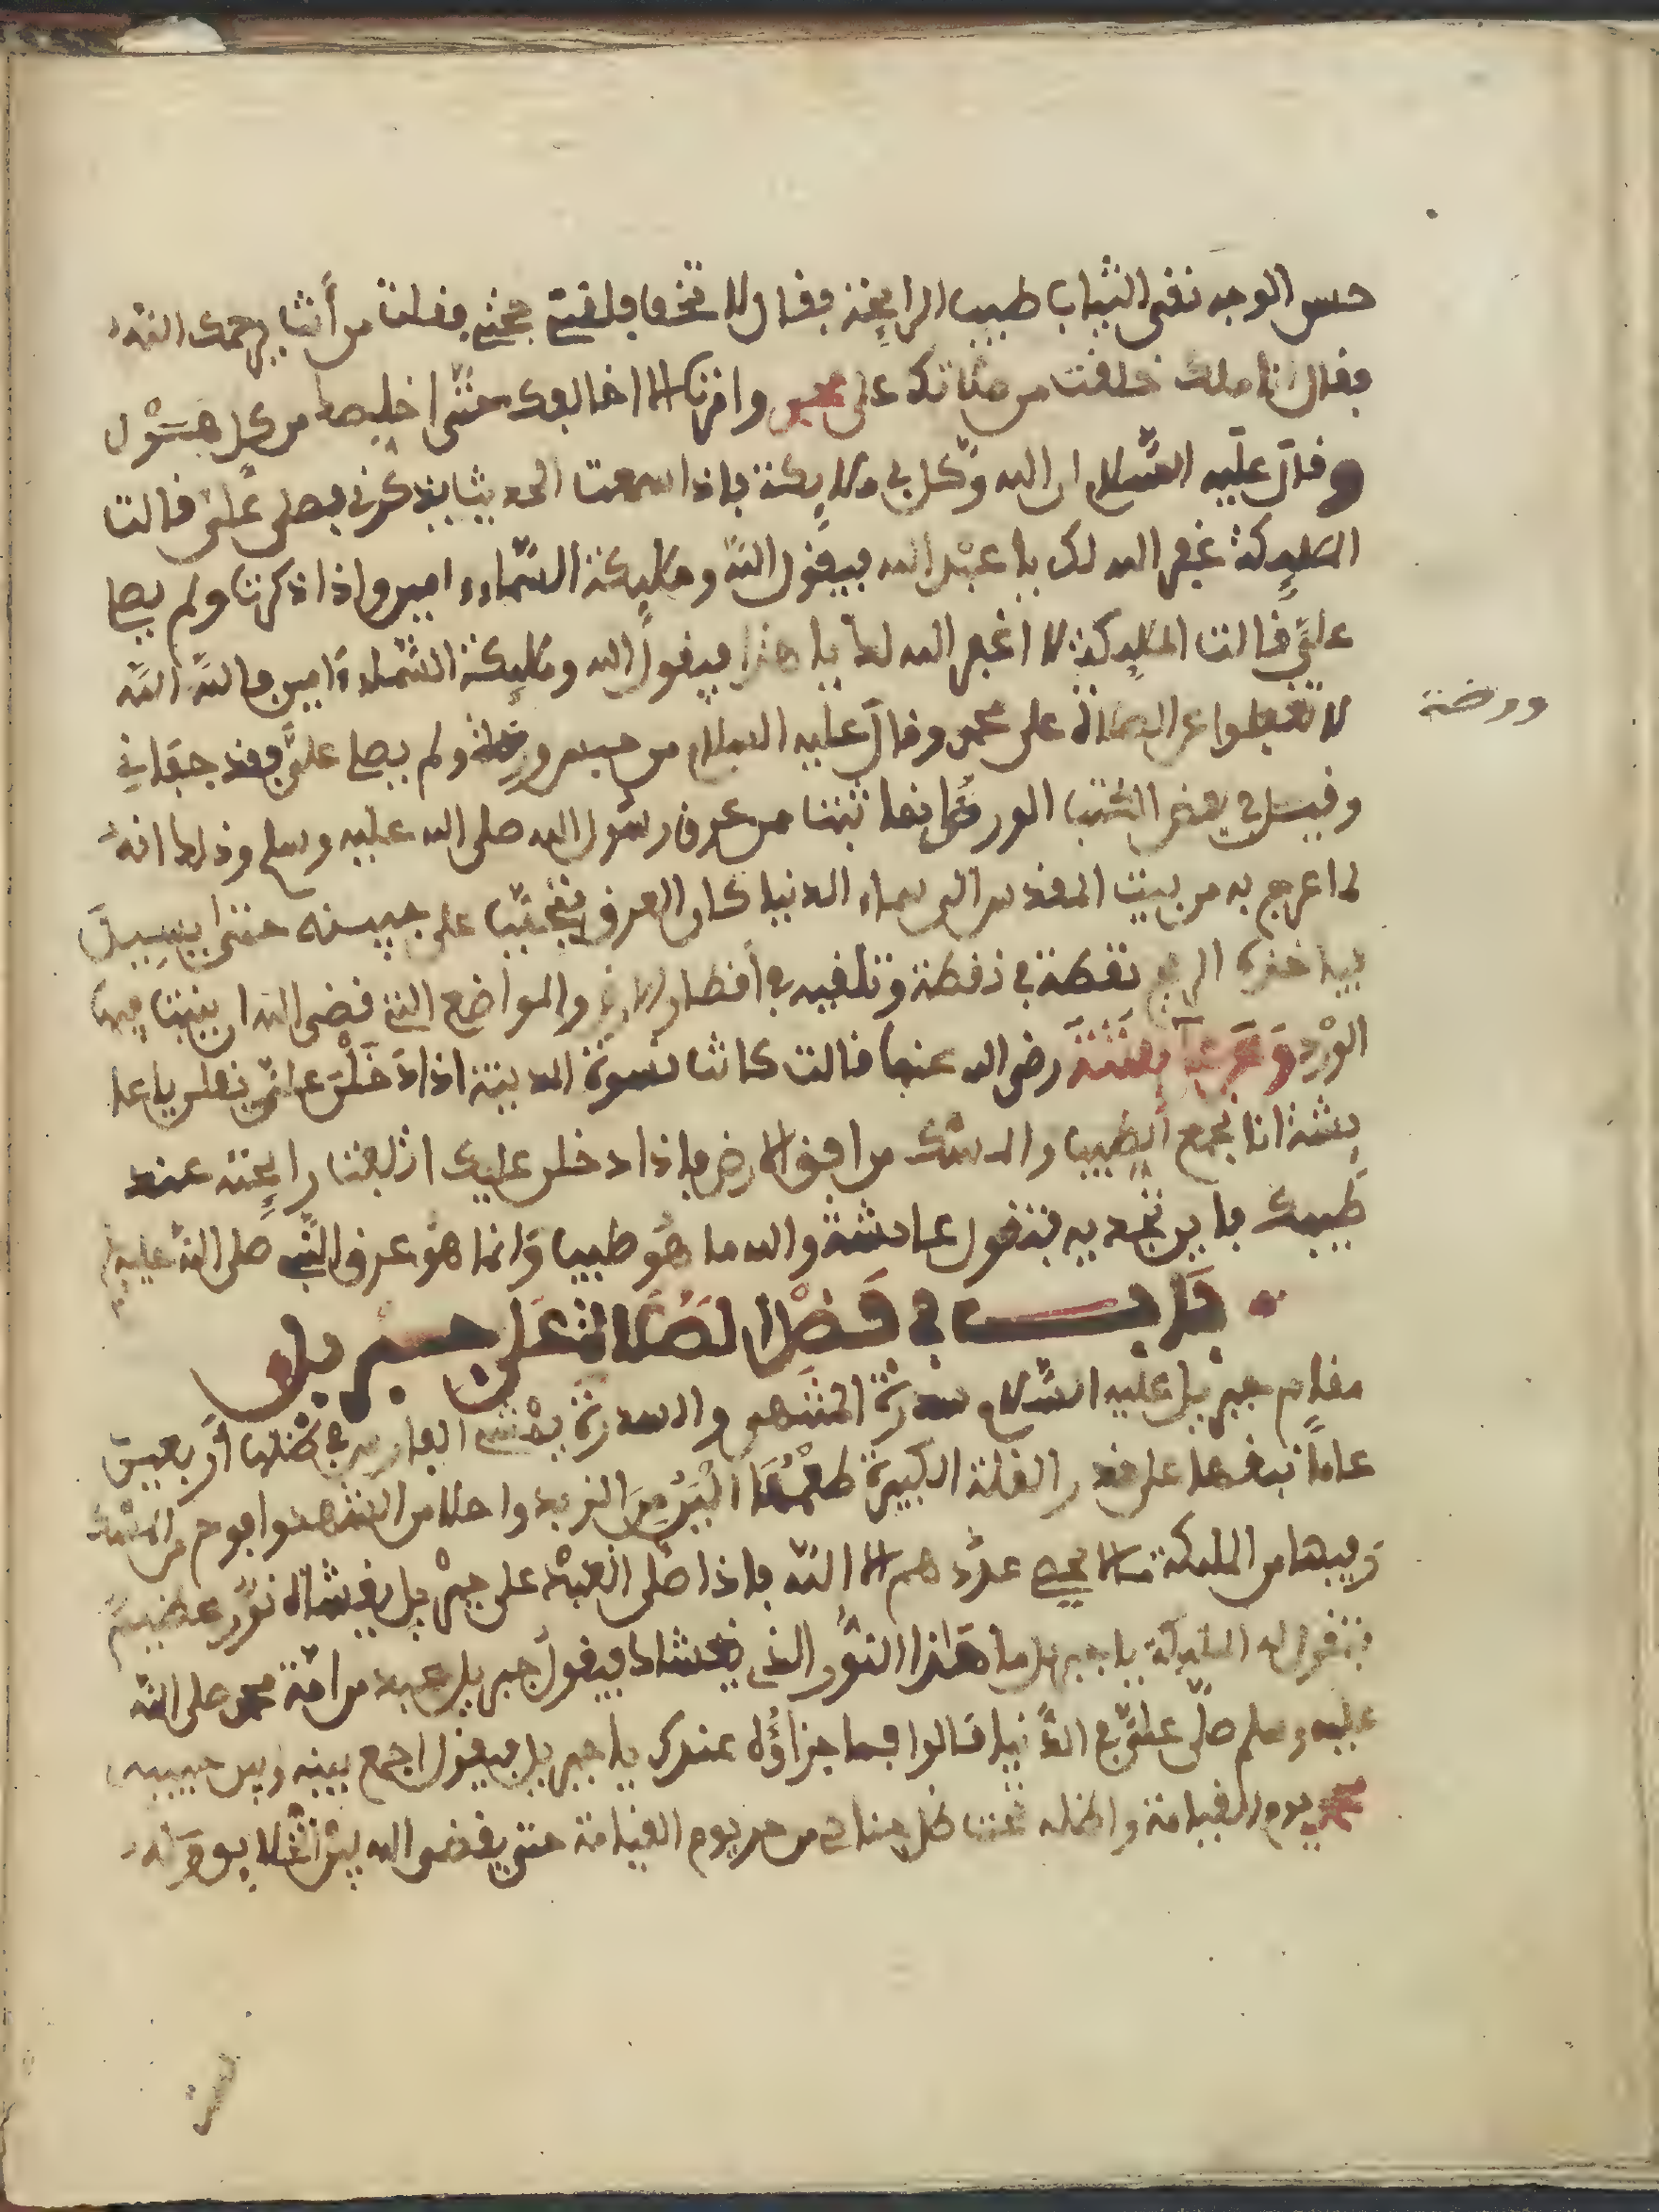 حسن الوجه نقى الثياب طيب الرايحة فقال لا تخف فلقنني حجتي فقلت من أنت يرحمك الله
فقال انا ملك خلقت من صلاتك على محمد وامرت الا افارقك حتى اخلصك من كل هول
وقال عليه السلام ان الله وكل بي ملايكة فاذا سمعت الحديث يذكرني فصلى علي قالت
الملايكة غفر الله لك يا عبد الله فيقول الله وملايكة السماء ءامين واذا ذكرت ولم يصل
علي قالت الملايكة لا اغفر الله لك يا هذا فيقول الله وملايكة السماء ءامين فالله الله
لا تغفلوا عن الصلاة على محمد وقال عليه السلام من ورضة ولم يصل علي فقد جفاني
ورضة
وقيل في بعض الكتب الورد انما نبت من عرق رسول الله صلى الله عليه وسلم وذلك انه
لما عرج به من بيت المقدس الى سماء الدنيا كان العرق على جبينه حتى يسيل
فياخذه الريح نقطة في نقطة وتلقيه في أقطار الارض والمواضع التي قضى الله ان ينبت فيها
الورد وعن عايشة رضي الله عنها قالت كانت نسوة المدينة اذا دخلن علي يقلن يا عا
يشة انا نجمع الطيب والمسك من افق الارض فاذا دخلن عليك رايحة عند
طيبك فاين نجد به فتقول عايشة والله ما هو طيب وانما هو عرق النبي صلى الله عليه
باب في فضل الصلاة على جبريل
مقام جبريل عليه السلام سدرة المنتهى والسدرة يمشي الفارس في ظلها أربعين
عاما نبقها على قدر القلة الكبيرة طعمها الين من الزبد واحلا من الشهد وافوح من المسك
وفيها من الملايكة ما لا يحصي عددهم الا الله فاذا صلى العبد على جبريل يغشاه نور عظيم
فتقول له الملايكة يا جبريل ما هذا النور الذي يغشاك فيقول جبريل عبد من امة محمد صلى الله
عليه وسلم صلى علي في الدنيا قالوا فما جزاؤه عندك يا جبريل فيقول اجمع بينه وبين حبيبه
محمد يوم القيامة واظله تحت ظل جناحي من حر يوم القيامة حتى يقضي الله بين الخلايق